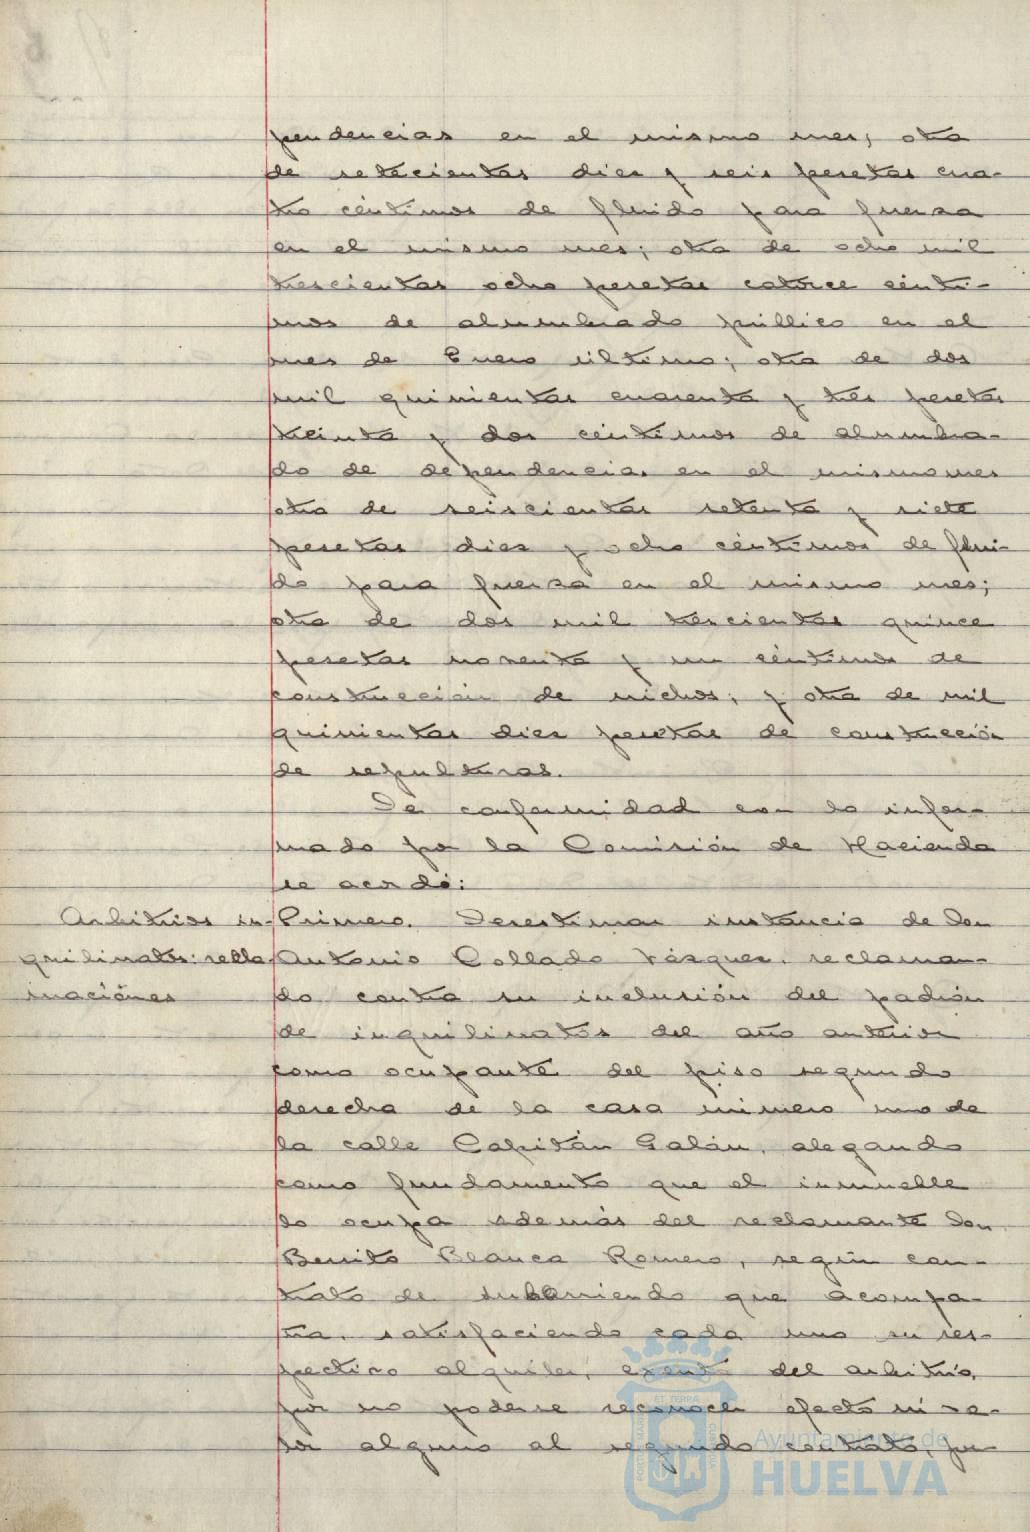 pendencias en el mismo mes; otra
de setecientas diez y seis pesetas cua-
tro céntimos de fluido para fuerza
en el mismo mes; otra de ocho mil
trescientas ocho pesetas catorce cénti-
mos de alumbrado público en el
mes de Enero último; otra de dos
mil quinientas cuarenta y tres pesetas
treinta y dos céntimos de alumbra-
do de dependencias en el mismo mes
otra de seiscientas setenta y siete
pesetas diez y ocho céntimos de flui-
do para fuerza en el mismo mes;
otra de dos mil trescientas quince
pesetas noventa y un céntimos de
construcción de nichos; y otra de mil
quinientas diez pesetas de construcción
de sepulturas.
De conformidad con lo infor-
mado por la Comisión de Hacienda
se acordó:
Arbitrios in-
quilinatos: recla-
maciónes
Primero. Desestimar instancia de Don
Antonio Collado Vázquez, reclaman-
do contra su inclusión del padrón
de inquilinatos del año anterior
como ocupante del piso segundo
derecha de la casa número uno de
la calle Capitán Galán, alegando
como fundamento que el inmueble
lo ocupa además del reclamante Don
Benito Blanca Romero, según con-
trato de subarriendo que acompa-
ña, satisfaciendo cada uno su res-
pectivo alquiler, exento del arbitrio,
por no poderse reconocer efecto ni va-
lor alguno al segundo contrato, pu-
Ayuntamiento de
HUELVA